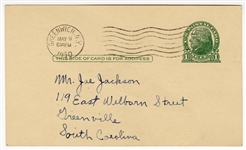 GREENWICH, N.Y.
MAY 9
6 PM
1950
THIS SIDE OF CARD IS FOR ADDRESS
Mr. Joe Jackson
119 East Welborn Street
Greenville
South Carolina